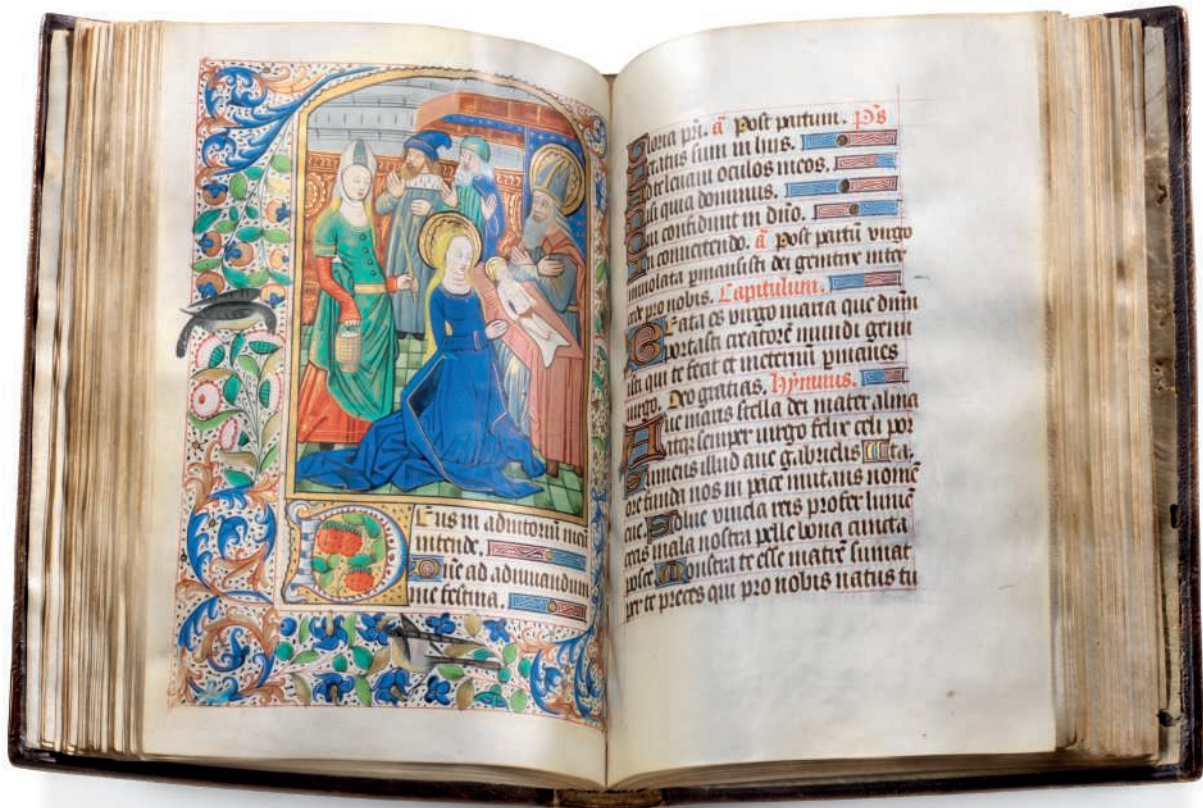 Deus in adiutoriū meū
intende.
Dñe ad adiuvandum
me festina.
Gloria pr̄i. ā Post partum. Ps̄
Letatus sum in hijs.
Ad te levavi oculos meos.
Nisi quia dominus.
Qui confidunt in dño.
In convertendo. ā Post partū virgo
inviolata pmansisti dei genitrix inter
cede pro nobis. Capitulum.
Beata es virgo maria que dñm
portasti creatorē mundi genui
isti qui te fecit et ineternū pmanes
virgo. Deo gratias. Hymnus.
Ave maris stella dei mater alma
Atqȝ semper virgo felix celi por
Sumens illud ave gabrielis ta.
ore funda nos in pace mutans nomē
eve. Solve vincla reis profer lumē
cecis mala nostra pelle bona cuncta
posce. Monstra te esse matrē sumat
per te preces qui pro nobis natus tu